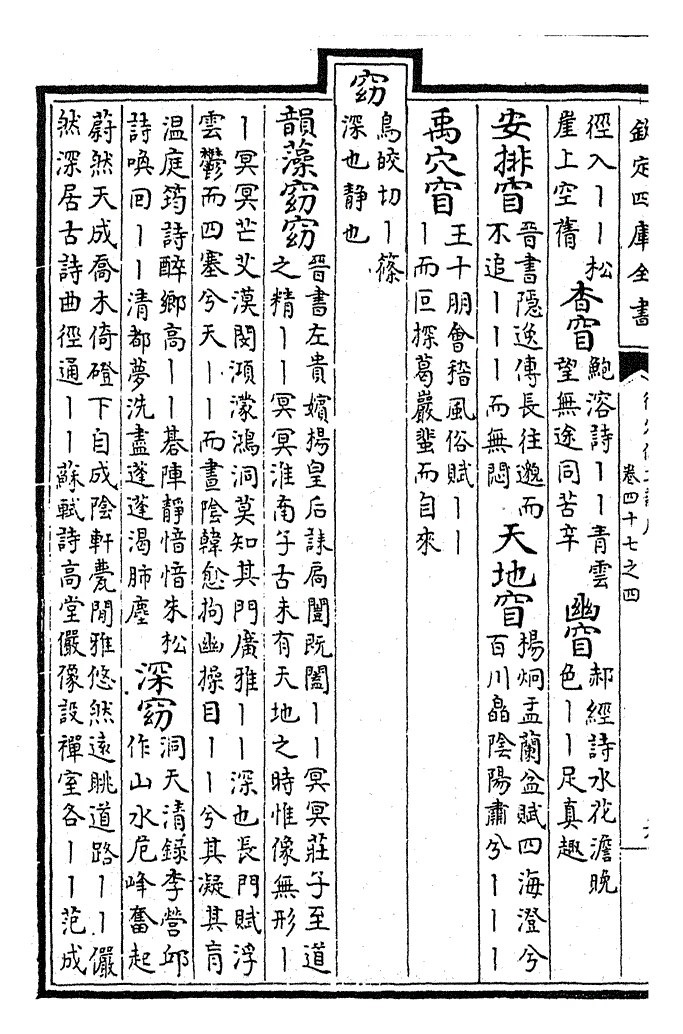 欽定四庫全書
卷四十七之四
徑入丨丨松
崖上空舊
杳窅
鮑溶詩丨丨青雲
望無途同苦辛
幽窅
郝經詩水花澹晚
色丨丨足真趣
安排窅
晉書隱逸傳長往邈而
不追丨丨丨而無悶
天地窅
楊炯盂蘭盆賦四海澄兮
百川皛陰陽肅兮丨丨丨
禹穴窅
王十朋會稽風俗賦丨丨
丨而叵探葛巖蜚而自來
窈
烏皎切丨篠
深也靜也
韻藻窈窈
晉書左貴嬪揚皇后誄扃闥既闔丨丨冥冥莊子至道
之精丨丨冥冥淮南子古未有天地之時惟像無形丨
丨冥冥芒芠漠閔澒濛鴻洞莫知其門廣雅丨丨深也長門賦浮
雲鬱而四塞兮天丨丨而晝陰韓愈拘幽操目丨丨兮其凝其肓
温庭筠詩醉鄉高丨丨棊陣靜愔愔朱松
詩喚回丨丨清都夢洗盡蓬蓬渴肺塵
深窈
洞天清錄李營邱
作山水危峰奮起
蔚然天成喬木倚磴下自成陰軒甍閒雅悠然遠眺道路丨丨儼
然深居古詩曲徑通丨丨蘇軾詩高堂儼像設禪室各丨丨范成